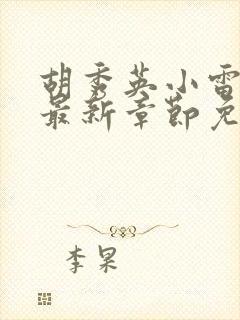 胡秀英小雷
最新章节免
李杲